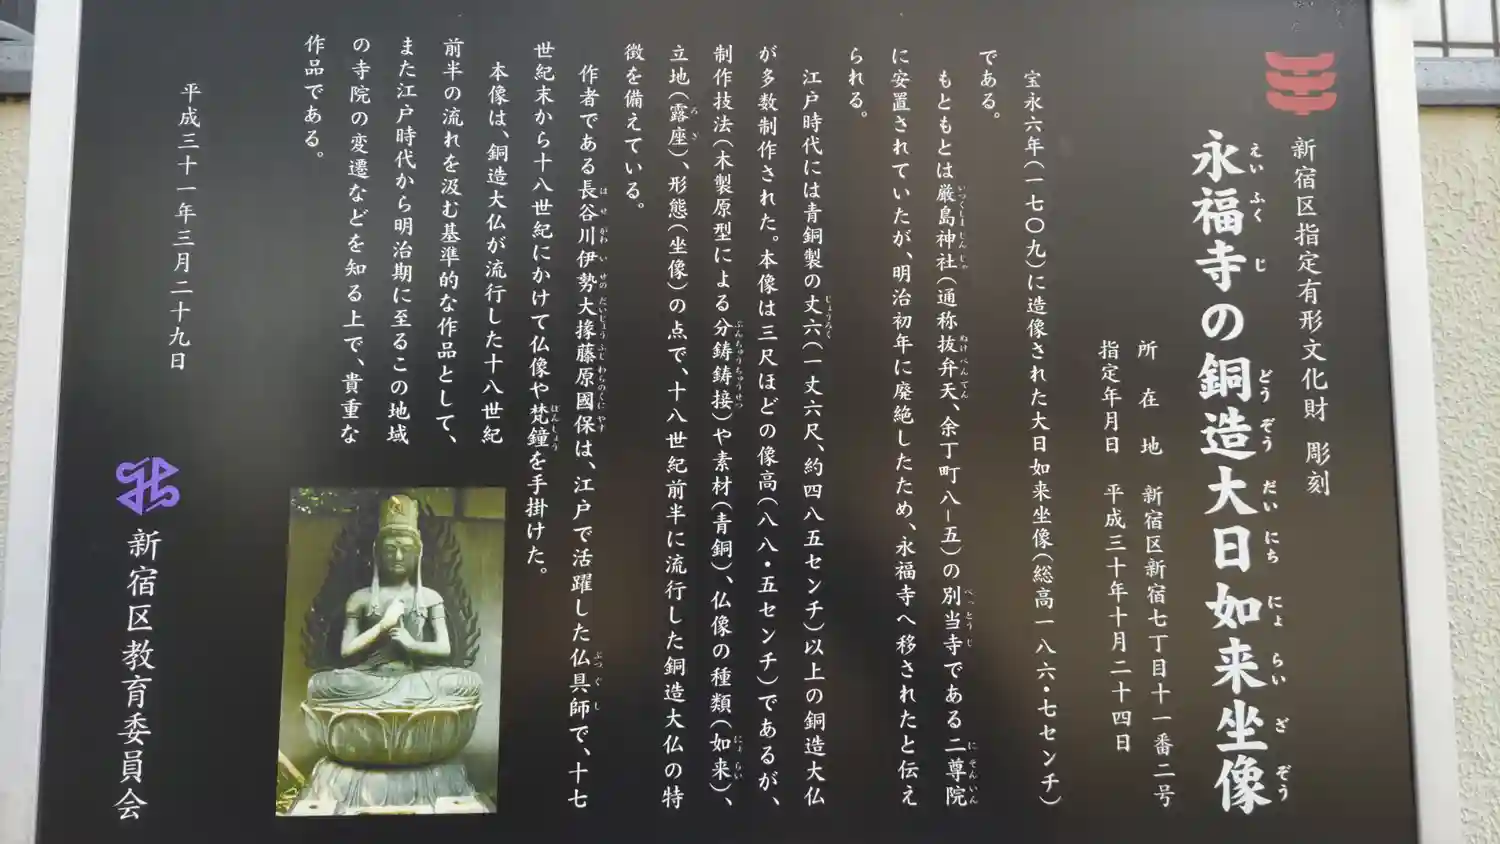 新宿区指定有形文化財 彫刻
永福寺の銅造大日如来坐像
えいふくじ どうぞうだいにちにょらいざぞう
所在地 新宿区新宿七丁目十一番二号
指定年月日 平成三十年十月二十四日
宝永六年(一七〇九)に造像された大日如来坐像(総高一八六・七センチ)
である。
もともとは厳島神社(通称抜弁天、余丁町八−五)の別当寺である二尊院
いつくしまじんじゃ ぬけべんてん べっとうじ にそんいん
に安置されていたが、明治初年に廃絶したため、永福寺へ移されたと伝え
られる。
江戸時代には青銅製の丈六(一丈六尺、約四八五センチ)以上の銅造大仏
じょうろく
が多数制作された。本像は三尺ほどの像高(八八・五センチ)であるが、
制作技法(木製原型による分鋳鋳接)や素材(青銅)、仏像の種類(如来)、
ぶんちゅうちゅうせつ にょらい
立地(露座)、形態(坐像)の点で、十八世紀前半に流行した銅造大仏の特
ろざ
徴を備えている。
作者である長谷川伊勢大掾藤原國保は、江戸で活躍した仏具師で、十七
はせがわいせのだいじょうふじわらのくにやす ぶつぐし
世紀末から十八世紀にかけて仏像や梵鐘を手掛けた。
ぼんしょう
本像は、銅造大仏が流行した十八世紀
前半の流れを汲む基準的な作品として、
また江戸時代から明治期に至るこの地域
の寺院の変遷などを知る上で、貴重な
作品である。
平成三十一年三月二十九日
新宿区教育委員会